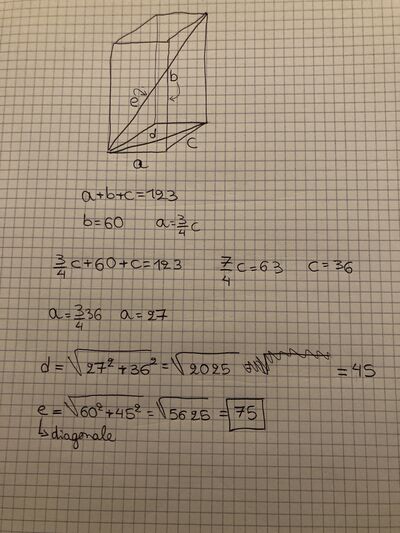 e
b
d
c
a
a+b+c=123
b=60 a=3/4c
3/4c+60+c=123 7/4c=63 c=36
a=3/4 36 a=27
d=√27²+36²=√2025 =45
e=√60²+45²=√5625=75
↳diagonale